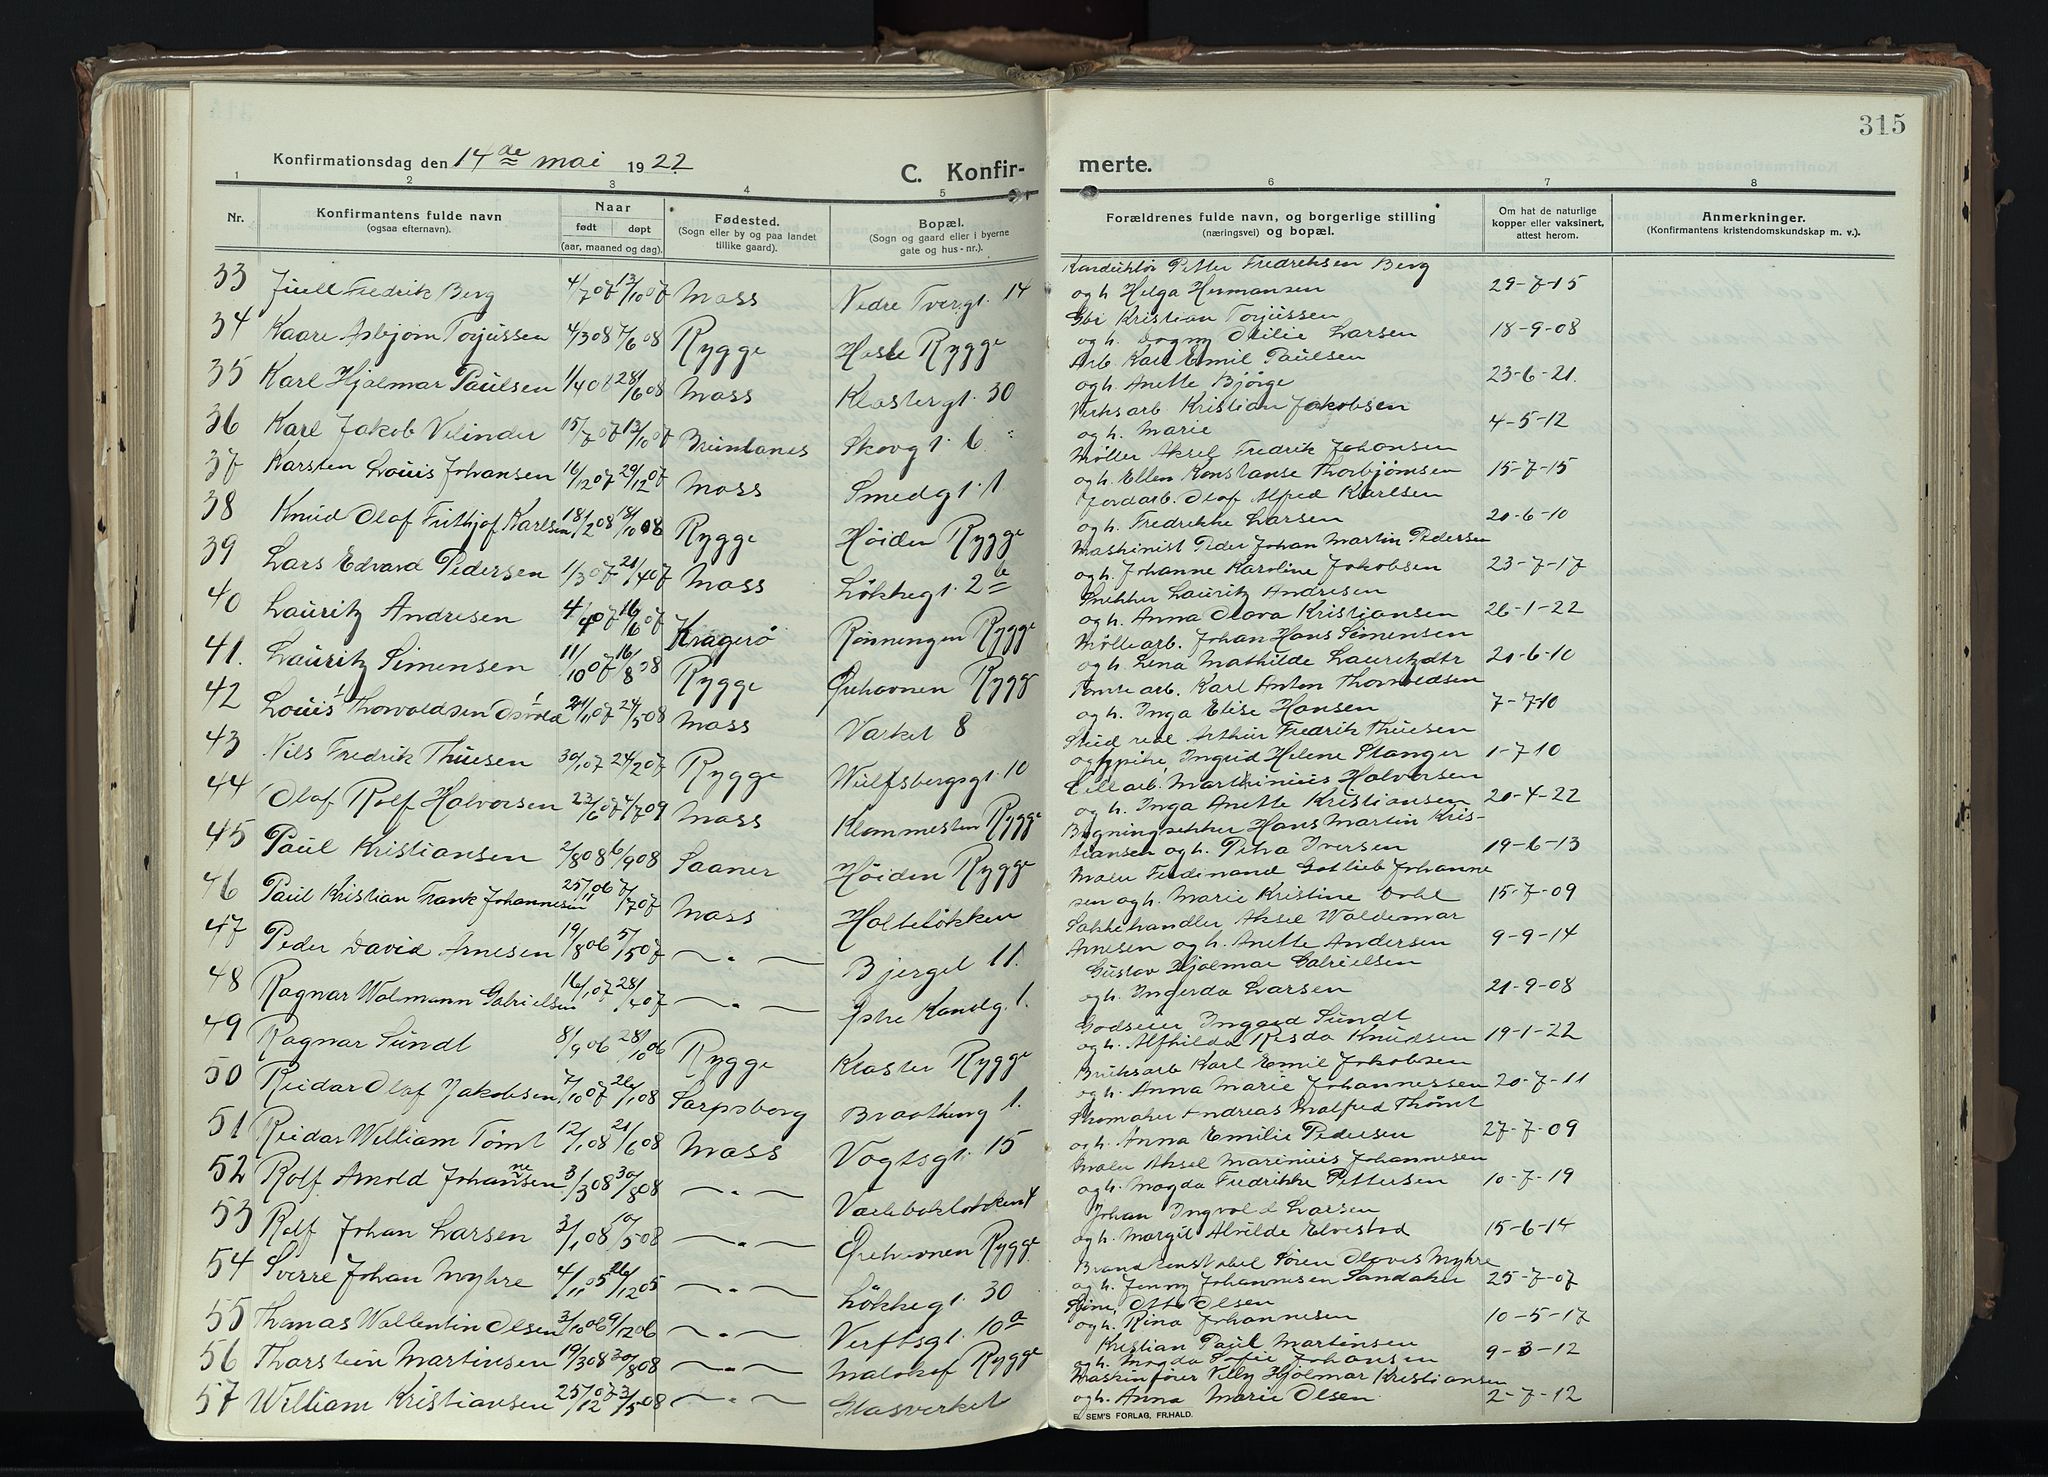 315
Konfirmationsdag den 14de mai 1922
C. Konfir-
merte.
1 2 3 4 5 6 7 8
Nr.
Konfirmantens fulde navn
(ogsaa efternavn).
Naar
født døpt
(aar, maaned og dag).
Fødested.
(Sogn eller by og paa landet
tillike gaard).
Bopæl.
(Sogn og gaard eller i byerne
gate og hus-nr.).
Forældrenes fulde navn, og borgerlige stilling
(næringsvei) og bopæl.
Om hat de naturlige
kopper eller vaksinert,
attest herom.
Anmerkninger.
(Konfirmantens kristendomskundskap m. v.).
33 Juell Fredrik Berg 4/7 07 13/10 07 Moss Nedre Tvergt. 14 Konduktør Petter Fredriksen Berg
og h. Helga Hermansen 29-7-15
34 Kaare Asbjørn Torjussen 4/3 08 7/6 08 Rygge Rygge Kristian Torjussen
og h. Dagny Otilie Larsen 18-9-08
35 Karl Hjalmar Paulsen 1/4 08 28/6 08 Moss Klostergt. 30 Arb Karl Emil Paulsen
og h. Anette Bjørge 23-6-21.
36 Karl Jakob Velinder 15/7 07 13/10 07 Skovgt. 6 Verksarb. Kristian Jakobsen
og h. Marie 4-5-12
37 Karsten Louis Johansen 16/12 07 29/12 07 Moss Smedgt. 1 Møller Aksel Fredrik Johansen
og h. Ellen Konstanse Thorbjørnsen 15-7-15
38 Knud Olaf Frithjof Karlsen 18/2 08 18/10 08 Rygge Høiden Rygge Jordarb. Olaf Alfred Karlsen
og h. Fredrikke Larsen 20-6-10
39 Lars Edvard Pedersen 1/3 07 21/4 07 Moss Løkkegt. 2b Maskinist Peder Johan Martin Pedersen
og h. Johanne Karoline Jakobsen 23-7-17
40 Lauritz Andresen 4/4 07 16/6 07 Kragerø Rønningen Rygge Snekker Lauritz Andresen
og h. Anna Olava Kristiansen 26-1-22
41. Lauritz Simensen 11/10 07 16/8 08 Rygge Ørehavnen Rygge Møllearb. Johan Hans Simensen
og h. Lina Mathilde Lauritzdtr 20-6-10
42 Louis Thorvaldsen Osvold 24/5 08 Moss Værket 8 Tomtearb. Karl Anton Thorvaldsen
og h. Inga Elise Hansen 7-7-10
43 Nils Fredrik Thuesen 30/1 07 24/2 07 Rygge Wulfsbergsgt. 10 Stud real Arthur Fredrik Thuesen
og pike, Ingrid Helene Stanger 1-7-10
44 Olaf Rolf Halvorsen 23/6 07 4/7 09 Moss Klommesten Rygge Marthinius Halvorsen
og h. Inga Anette Kristiansen 20-4-22
45 Paul Kristiansen 2/8 08 6/9 08 Saaner Høiden Rygge Hans Martin Kris-
tiansen og h. Petra Iversen 19-6-13
46 Paul Kristian Frank Johannesen 25/11 06 7/7 07 Moss Holteløkken Maler Ferdinand Gotlieb Johanne
sen og h. Marie Kristine Dahl 15-7-09
47 Peder David Arnesen 19/8 06 5/5 07 — " — Bjerget 11. Aksel Waldemar
Arnesen og h. Anette Andersen 9-9-14
48 Ragnar Walmann Gabrielsen 16/1 07 28/4 07 — " — Østre Kanalg. 1. Gustav Hjalmar Gabrielsen
og h. Ingerda Larsen 21-9-08
49 Ragnar Sundt 8/9 06 28/10 06 Rygge Kloster Rygge Godseier Ingard Sundt
og h. Alfhilda Resda Knudsen 19-1-22
50 Reidar Olaf Jakobsen 7/10 07 26/1 08 Sarpsborg 1. Bruksarb Karl Emil Jakobsen
og h. Anna Marie Johannessen 20-7-11
51 Reidar William Tømt 12/1 08 21/6 08 Moss Vogtsgt. 15 Skomaker Andreas Malfred Thømt
og h. Anna Emilie Pedersen 27-7-09
52 Rolf Arnold Johannesen 3/3 08 30/8 08 — " — Maler Aksel Marinius Johannesen
og h. Magda Fredrikke Pettersen 10-7-19
53 Rolf Johan Larsen 3/1 08 10/5 08 — " — Ørehavnen Rygge Johan Ingvald Larsen
og h. Margit Alvilde Elvestad 15-6-14
54 Sverre Johan Myhre 4/11 05 26/12 05 — " — Løkkegt. 30 Brandkonstabel Søren Oloves Myhre
og h. Jenny Johannesen Sandaker 25-7-07
55 Thomas Wallentin Olsen 3/10 06 9/12 06 — " — Verftsgt. 10a Otto Olsen
og h. Rina Johannesen 10-5-17
56 Thorstein Martinsen 19/3 08 30/8 08 — " — Rygge Kristian Paul Martinsen
og h. Magda Sofie Johansen 9-3-12
57 William Kristiansen 25/12 07 3/5 08 — " — Glasverket Maskinfører Villy Hjalmar Kristiansen
og h. Anna Marie Olsen 2-7-12
E. SEM'S FORLAG, FR.HALD.